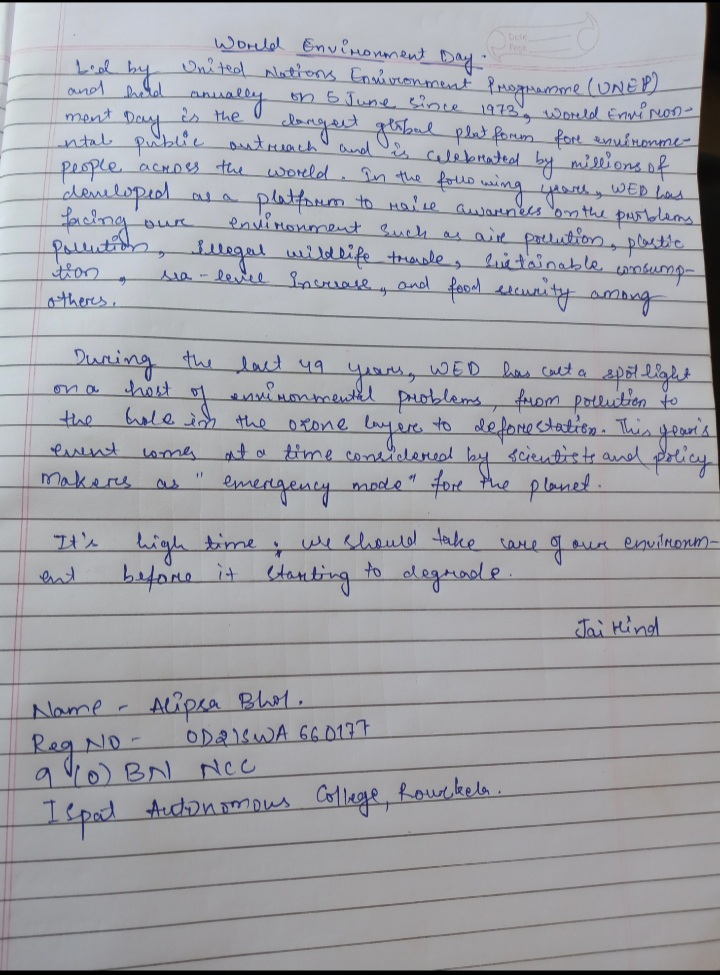 World Environment Day.
Date
Page
Led by United Nations Environment Programme (UNEP)
and held anually on 5 June since 1973, World Environ-
ment Day is the largest global platform fore environme-
ntal public outreach and is celebrated by millions of
people across the world. In the following years, WED has
developed as a platform to raise awarness on the problems
facing our environment such as air pollution, plastic
pollution, illegal wildlife trade, sustainable consump-
tion, sea-level Increase, and food security among
others.
During the last 49 years, WED has cast a spotlight
on a host of environmental problems, from pollution to
the hole in the ozone layere to deforestation. This year's
event comes at a time considered by scientists and policy
makers as "emergency mode" fore the planet.
It's high time; we should take care of our environm-
ent before it starting to degrade.
Jai Hind
Name - Alipsa Bhol.
Reg NO - OD21SWA 660177
9 (O) BN NCC
Ispat Autonomous College, Rourkela.